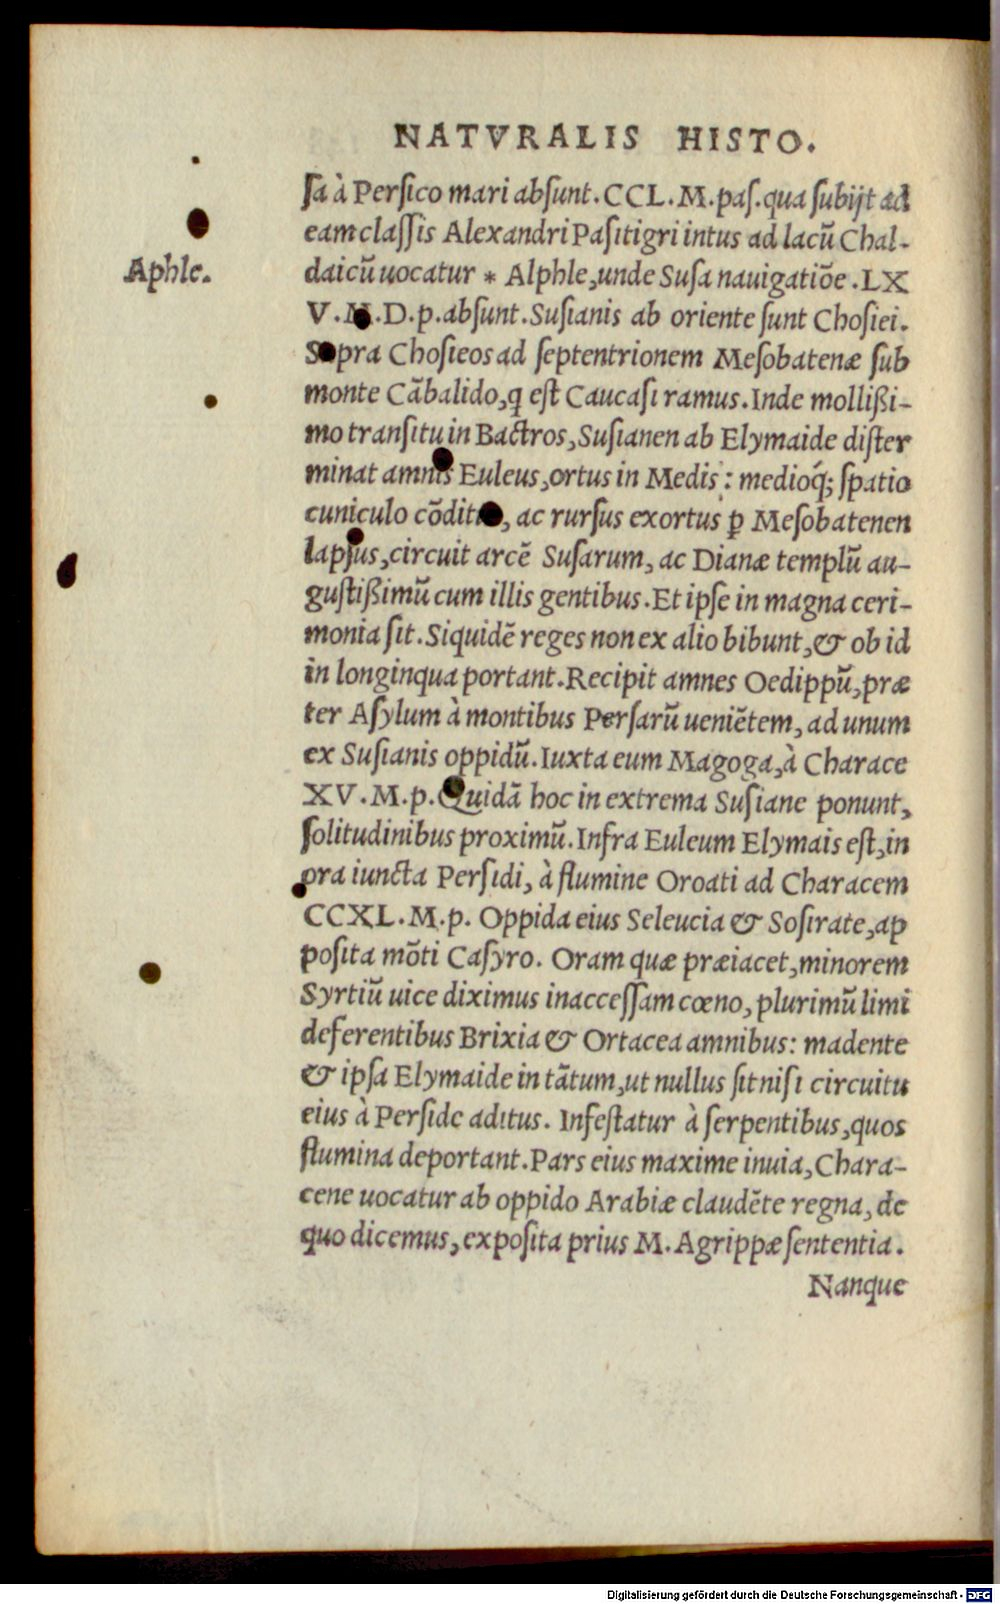 NATVRALIS HISTO.
ſa à Perſico mari abſunt. CCL. M. paſ. qua ſubijt ad
eam claſſis Alexandri Paſitigri intus ad lacū Chal-
Aphle.
daicū uocatur * Alphle, unde Suſa nauigatiōe. LX
V. M. D. p. abſunt. Suſianis ab oriente ſunt Choſiei.
Supra Choſieos ad ſeptentrionem Meſobatenæ ſub
monte Cābalido, q̄ eſt Caucaſi ramus. Inde mollißi-
mo tranſitu in Bactros, Suſianen ab Elymaide diſter
minat amnis Euleus, ortus in Medis: medioq́; ſpatio
cuniculo cōditus, ac rurſus exortus ꝑ Meſobatenen
lapſus, circuit arcē Suſarum, ac Dianæ templū au-
guſtißimū cum illis gentibus. Et ipſe in magna ceri-
monia ſit. Siquidē reges non ex alio bibunt, & ob id
in longinqua portant. Recipit amnes Oedippū, præ
ter Aſylum à montibus Perſarū ueniētem, ad unum
ex Suſianis oppidū. Iuxta eum Magoga, à Charace
XV. M. p. Quidā hoc in extrema Suſiane ponunt,
ſolitudinibus proximū. Infra Euleum Elymais eſt, in
ora iuncta Perſidi, à flumine Oroati ad Characem
CCXL. M. p. Oppida eius Seleucia & Soſirate, ap
poſita mōti Caſyro. Oram quæ præiacet, minorem
Syrtiū uice diximus inacceſſam cœno, plurimū limi
deferentibus Brixia & Ortacea amnibus: madente
& ipſa Elymaide in tātum, ut nullus ſit niſi circuitu
eius à Perſide aditus. Infeſtatur à ſerpentibus, quos
flumina deportant. Pars eius maxime inuia, Chara-
cene uocatur ab oppido Arabiæ claudēte regna, de
quo dicemus, expoſita prius M. Agrippæ ſententia.
Nanque
Digitalisierung gefördert durch die Deutsche Forschungsgemeinschaft - DFG